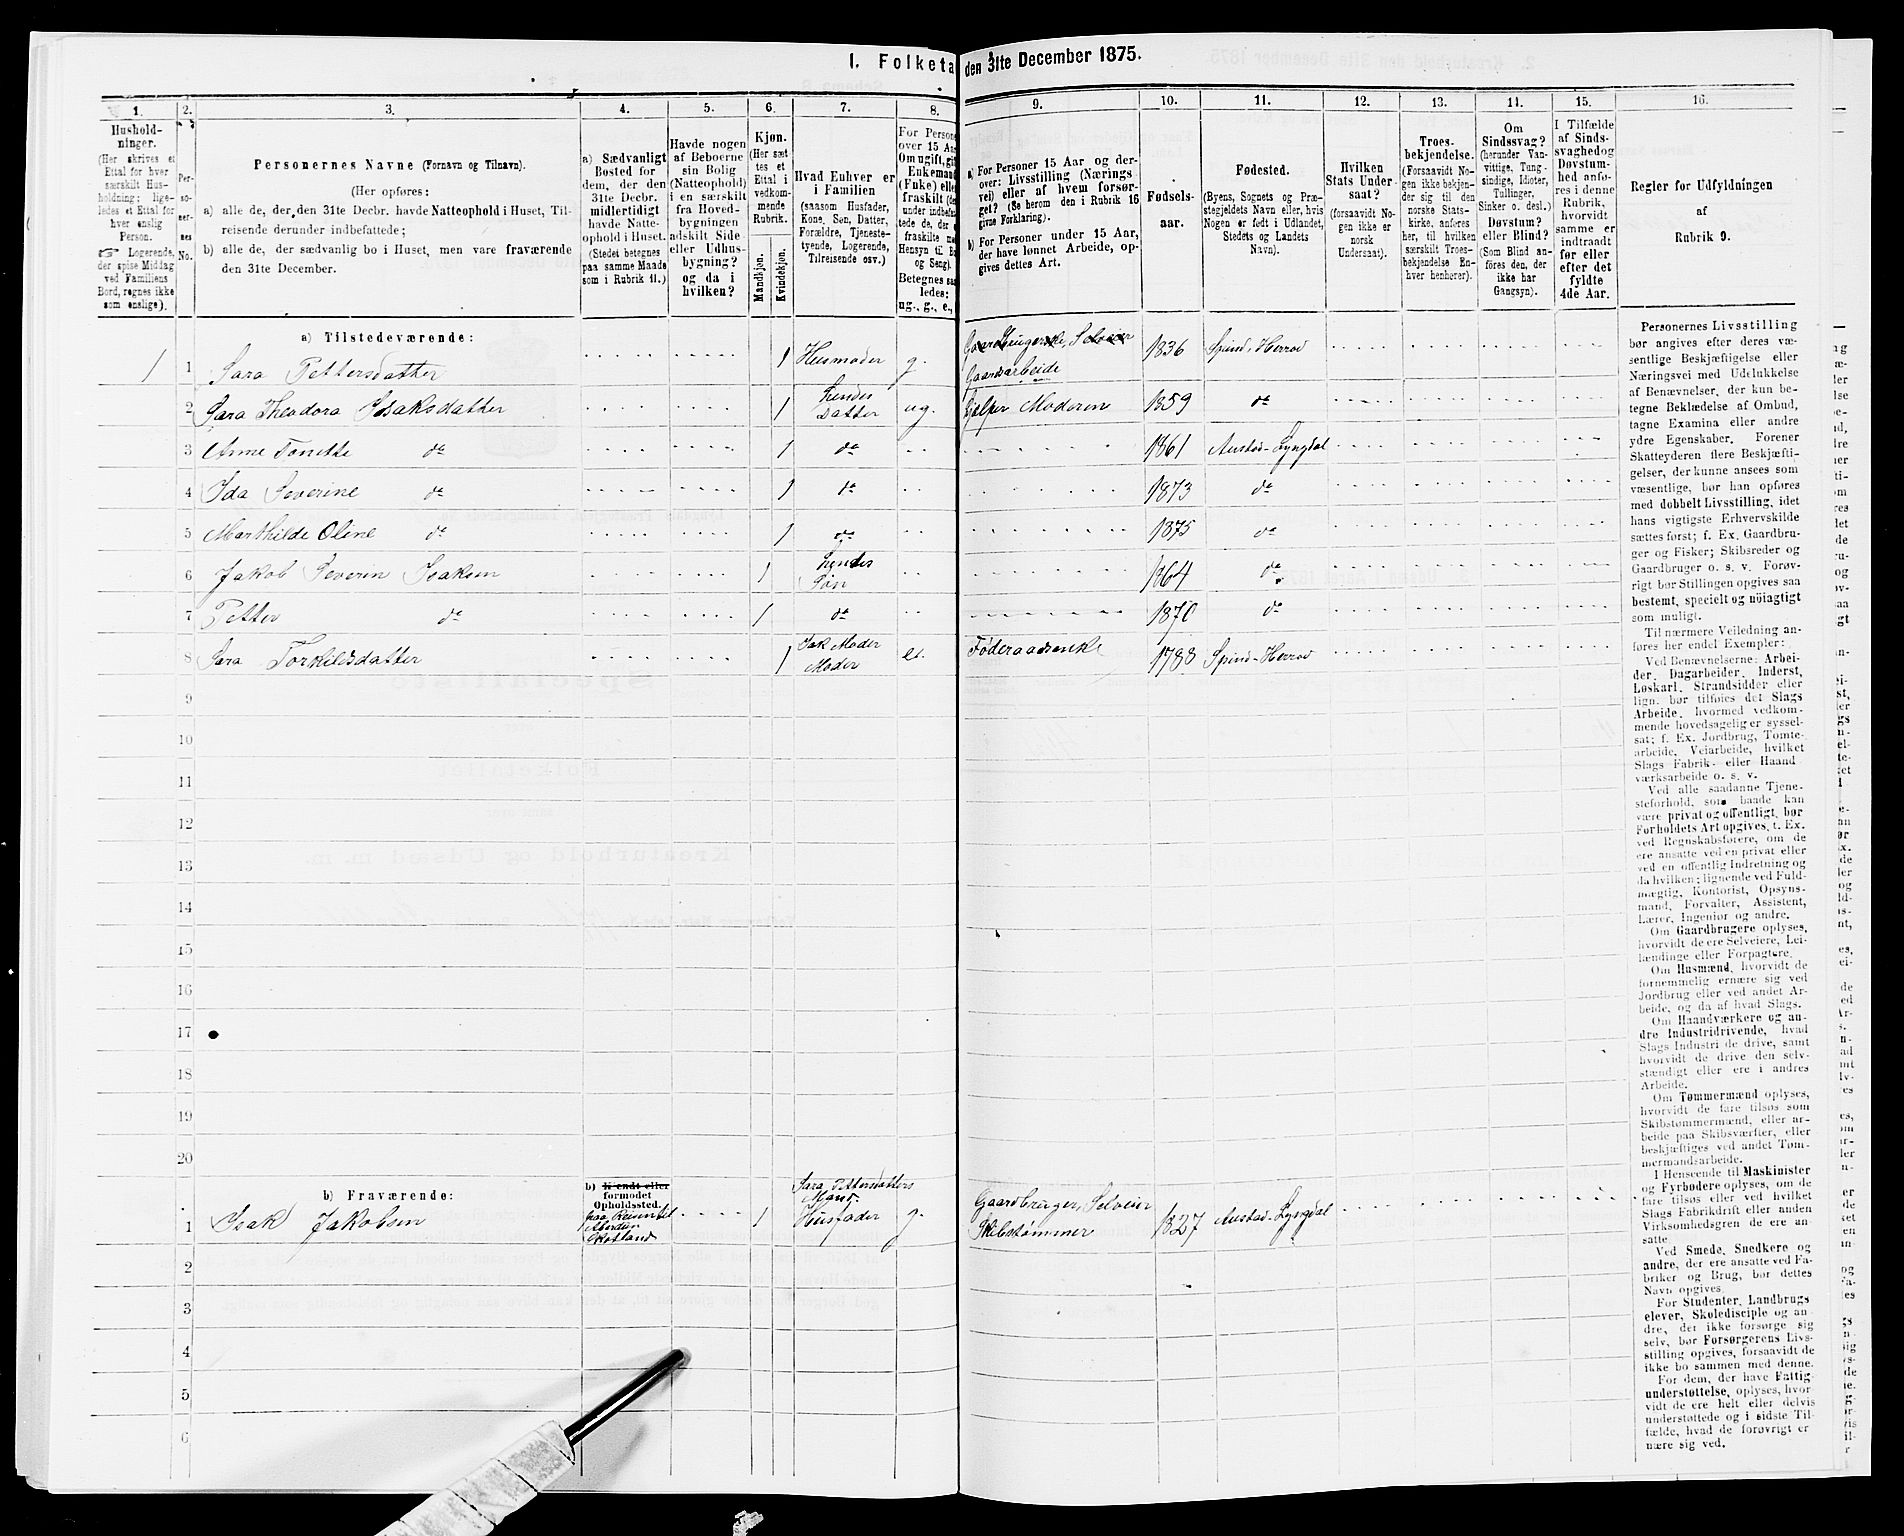 1. Folketa den 31te December 1875.
1. 2. 3. 4. 5. 6. 7. 8. 9. 10. 11. 12. 13. 14. 15. 16.
Hushold-
ninger.
(Her skrives et
Ettal for hver
særskilt Hus-
holdning; lige-
ledes et Ettal for
hver enslig
Person.
☞ Logerende,
der spise Middag
ved Familiens
Bord, regnes ikke
som enslige).
Per-
so-
ner-
nes
No.
Personernes Navne (Fornavn og Tilnavn).
(Her opføres:
a) alle de, der den 31te Decbr. havde Natteophold i Huset, Til-
reisende derunder indbefattede;
b) alle de, der sædvanlig bo i Huset, men vare fraværende
den 31te December.
a) Sædvanligt
Bosted for
dem, der den
31te Decbr.
midlertidigt
havde Natte-
ophold i Huset.
(Stedet betegnes
paa samme Maade
som i Rubrik 11.)
Havde nogen
af Beboerne
sin Bolig
(Natteophold)
i en særskilt
fra Hoved-
bygningen
adskilt Side
eller Udhus-
bygning?
og da i
hvilken?
Kjøn.
(Her sæt
tes et
Ettal i
vedkom-
mende
Rubrik.
Mandkjøn.
Kvindekjøn.
Hvad Enhver er
i Familien
(saasom Husfader,
Kone, Søn, Datter,
Forældre, Tjeneste-
tyende, Logerende,
Tilreisende osv.)
For Persone
over 15 Aa
Om ugift, git
Enkemand
(Enke) elle
fraskilt (de
under indbefa
tede de, der e
fraskilte me
Hensyn til Bo
og Seng).
Betegnes saa
ledes:
ug., g., e.,
a) For Personer 15 Aar og der-
over: Livsstilling (Nærings
vei) eller af hvem forsør-
get? (Se herom den i Rubrik 16
givne Forklaring).
b) For Personer under 15 Aar,
der have lønnet Arbeide, op-
gives dettes Art.
Fødsels-
aar.
Fødested.
(Byens, Sognets og Præ-
stegjeldets Navn eller, hvis
Nogen er født i Udlandet,
Stedets og Landets
Navn).
Hvilken
Stats Under-
saat?
(forsaavidt No-
gen ikke er
norsk
Undersaat).
Troes-
bekjendelse.
(Forsaavidt No-
gen ikke bekjen-
der sig til den
norske Stats-
kirke, anføres
her, til hvilken
særskilt Troes-
bekjendelse En-
hver henhører).
Om
Sindssvag?
(herunder Van-
vittige, Tung-
sindige, Idioter,
Tullinger,
Sinker o. desl.)
Døvstum?
eller Blind?
(Som Blind an-
føres den, der
ikke har
Gangsyn).
I Tilfælde
af Sinds-
svaghed og
Døvstum-
hed anfø-
res i denne
Rubrik,
hvorvidt
samme er
indtraadt
før eller
efter det
fyldte
4de Aar.
Regler for Udfyldningen
af
Rubrik 9.
a) Tilstedeværende:
1 1 Sara Pettersdatter 1 Husmoder g. Gaardbrugerske, Selveier Gaardsarbeide 1836 Spind, Herred
2 Sara Theodora Isaksdatter 1 hendes Datter ug. hjelper Moderen 1859 do
3 Anne Tonette do 1 do 1861 Austad-Lyngdal
4 Ida Severine do 1 do 1873 do
5 Marthilde Oline do 1 do 1875 do
6 Jakob Severin Isaksen 1 hendes Søn 1864 do
7 Petter do 1 do 1870 do
8 Sara Torkilsdatter 1 Isak Moder Moder e. Føderaadsenke 1788 Spind-Herred
9
10
11
12
13
14
15
16
17
18
19
20
b) Fraværende:
b) Kjendt eller
formodet
Opholdssted.
1 Isak Jakobsen paa Reisen til Aberdeen Skotland 1 Sara Pettersdatters Mand. Husfader g. Gaardbruger, Selveier Skibstømmer 1827 Austad-Lyngdal
2
3
4
5
6
Personernes Livsstilling
bør angives efter deres væ-
sentlige Beskjæftigelse eller
Næringsvei med Udelukkelse
af Benævnelser, der kun be-
tegne Beklædelse af Ombud,
tagne Examina eller andre
ydre Egenskaber. Forener
Skatteyderen flere Beskjæfti-
gelser, der kunne ansees som
væsentlige, bør han opføres
med dobbelt Livsstilling, idet
hans vigtigste Erhvervskilde
sættes først; f. Ex. Gaardbru-
ger og Fisker; Skibsreder og
Gaardbruger o. s. v. Forøv-
rigt bør Stillingen opgives saa
bestemt, specielt og nöiagtigt
som muligt.
Til nærmere Veiledning an-
føres her endel Exempler:
Ved Benævnelserne: Arbei-
der, Dagarbeider, Inderst,
Løskarl, Strandsidder eller
lign. bør tilføies det Slags
Arbeide, hvormed vedkom-
mende hovedsagelig er syssel-
sat; f. Ex. Jordbrug, Tomte-
arbeide, Veiarbeide, hvilket
Slags Fabrik- eller Haand
værksarbeide o. s. v.
Ved alle saadanne Tjene-
steforhold, som baade kan
være privat og offentligt, bør
Forholdets Art opgives, t. Ex.
ved Regnskabsførere, om de
ere ansatte ved en privat eller
ved en offentlig Indretning og
da hvilken; lignende ved Fuld-
mægtig, Kontorist, Opsyns-
mand, Forvalter, Assistent,
Lærer, Ingeniør og andre.
Om Gaardbrugere oplyses,
hvorvidt de ere Selveiere, Lei-
lændinge eller Forpagtere.
Om Husmænd, hvorvidt de
fornemmelig ernære sig ved
Jordbrug eller ved andet Ar-
beide, og da af hvad Slags.
Om Haandværkere og an-
dre Industridrivende, hvad
Slags Industri de drive, samt
hvorvidt de drive den selv-
stændigt eller ere i andres
Arbeide.
Om Tømmermænd oplyses,
hvorvidt de fare tilsøs som
Skibstømmermænd, eller ar-
beide paa Skibsværfter, eller
beskjæftiges ved andet Tøm-
mermandsarbeide.
I Henseende til Maskinister
og Fyrbødere oplyses, om de
fare tilsøs eller ved hvilket
Slags Fabrikdrift eller anden
Virksomhedsgren de ere an-
satte.
Ved Smede, Snedkere og
andre, der ere ansatte ved Fa-
briker og Brug, bør dettes
Navn opgives.
For Studenter, Landbrugs
elever, Skoledisciple og an-
dre, der ikke forsørge sig
selv, bør Forsørgerens Livs-
stilling opgives, forsaavidt de
ikke bo sammen med denne.
For dem, der have Fattig-
understøttelse, oplyses, hvor
vidt de ere helt eller delvis
understøttede og i sidste Til-
fælde, hvad de forøvrigt er
nære sig ved.